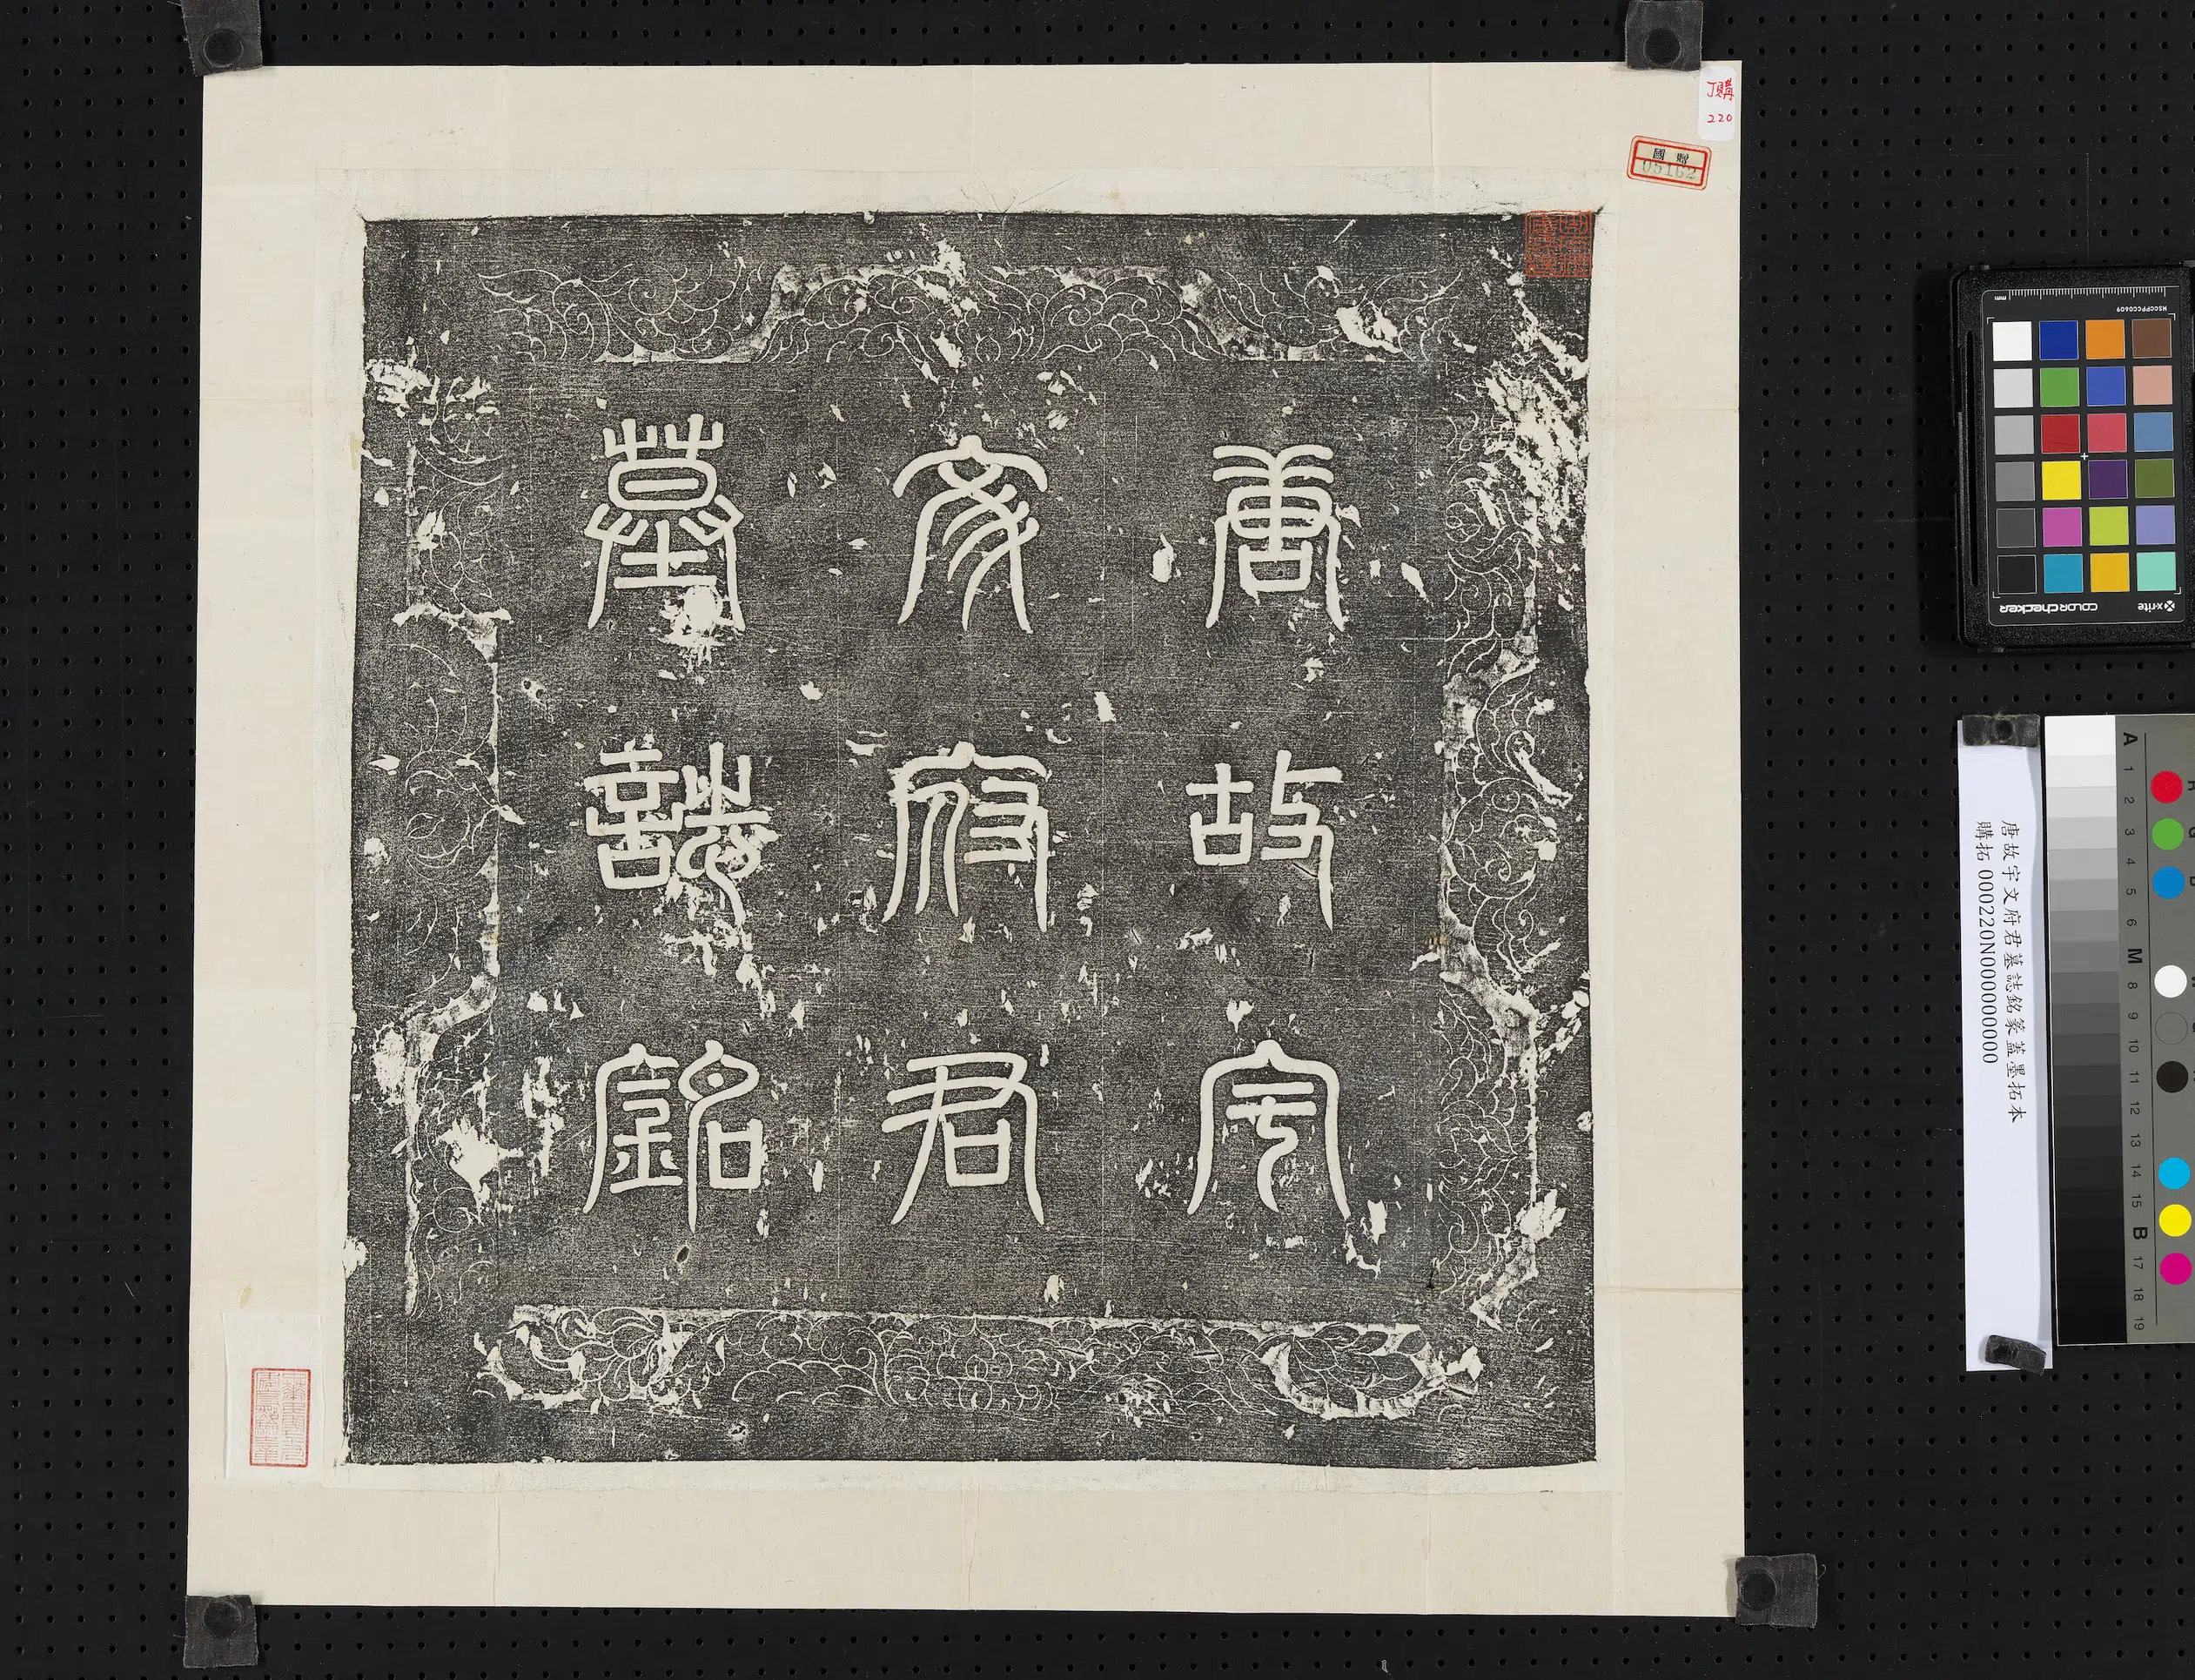 唐故宇
文府君
墓誌銘
丁購
220
國贈
05162
唐故宇文府君墓誌銘篆蓋墨拓本
購拓 000220N000000000
mm
MSCCPPCC0609
colorchecker
x-rite
A
1
2
3
4
5
6
M
8
9
10
11
12
13
14
15
B
17
18
19